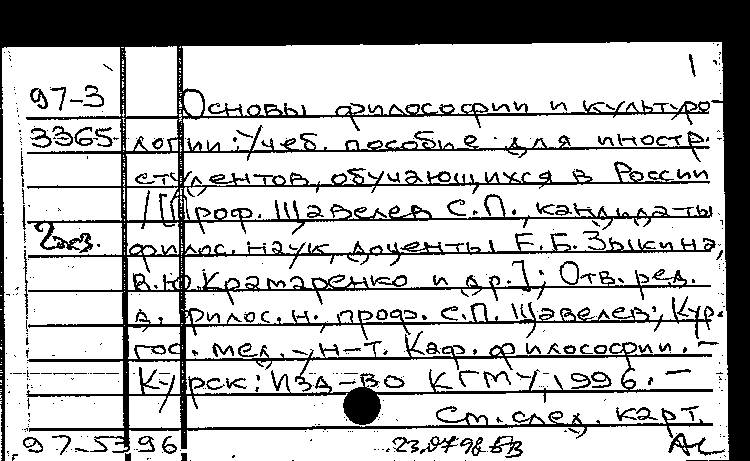 1
97-3 Основы философии и культуро-
3365 логии: Учеб. пособие для иностр.
студентов, обучающихся в России
/[Проф. Щавелев С.П., кандидаты
2экз. филос. наук, доценты Е.Б. Зыкина,
В.Ю. Крамаренко и др.]; Отв. ред.
д. филос. н., проф. С.П. Щавелев; Кур.
гос. мед. ун-т. Каф. философии. –
Курск: Изд-во КГМУ, 1996. –
См. след. карт.
97-5396 23.07.98 БВ